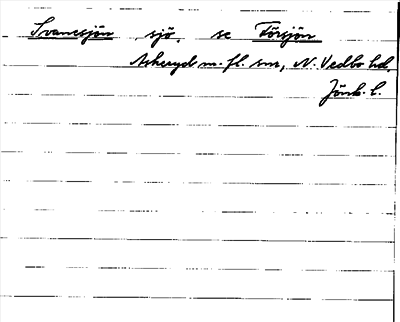 Svanesjön sjö, se Försjön
Askeryd m. fl. snr, N. Vedbo hd,
Jönk. l.